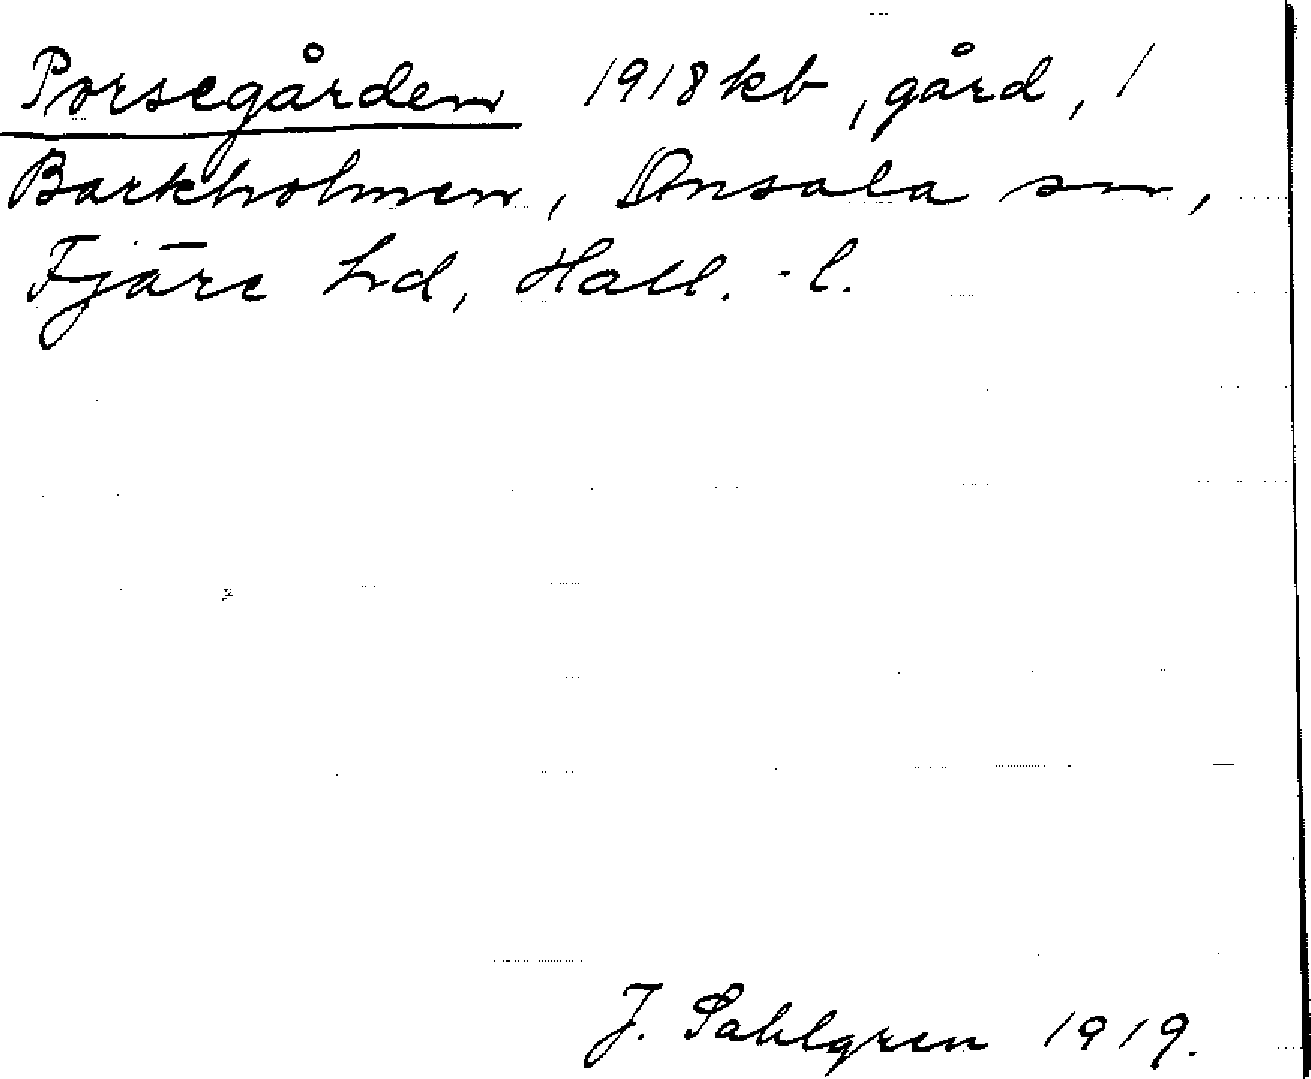 Porsegården 1918 kb, gård, 1
Backholmen, Onsala sn,
Fjäre hd, Hall. -l.
J. Sahlgren 1919.